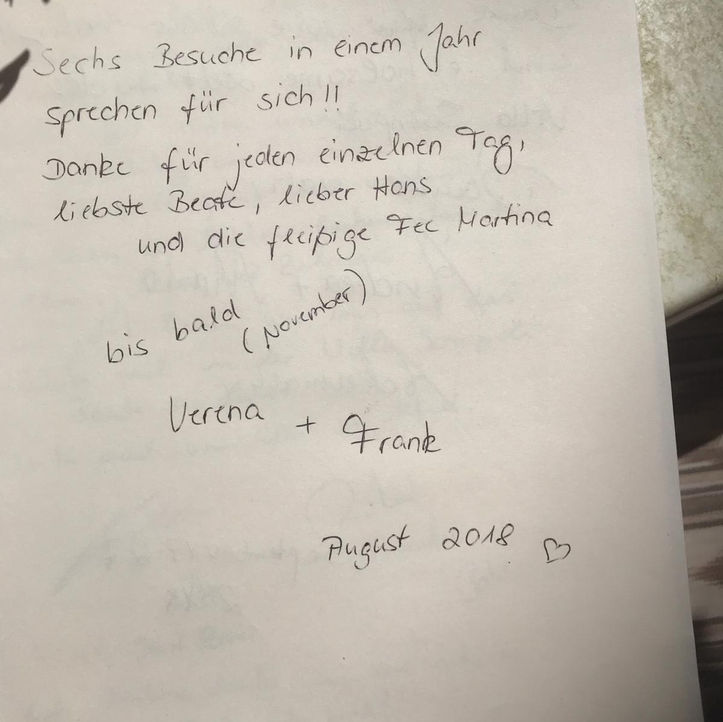 Sechs Besuche in einem Jahr
sprechen für sich!!
Danke für jeden einzelnen Tag,
liebste Beate, lieber Hans
und die fleißige Fee Martina
bis bald
(November)
Verena + Frank
August 2018 ♡